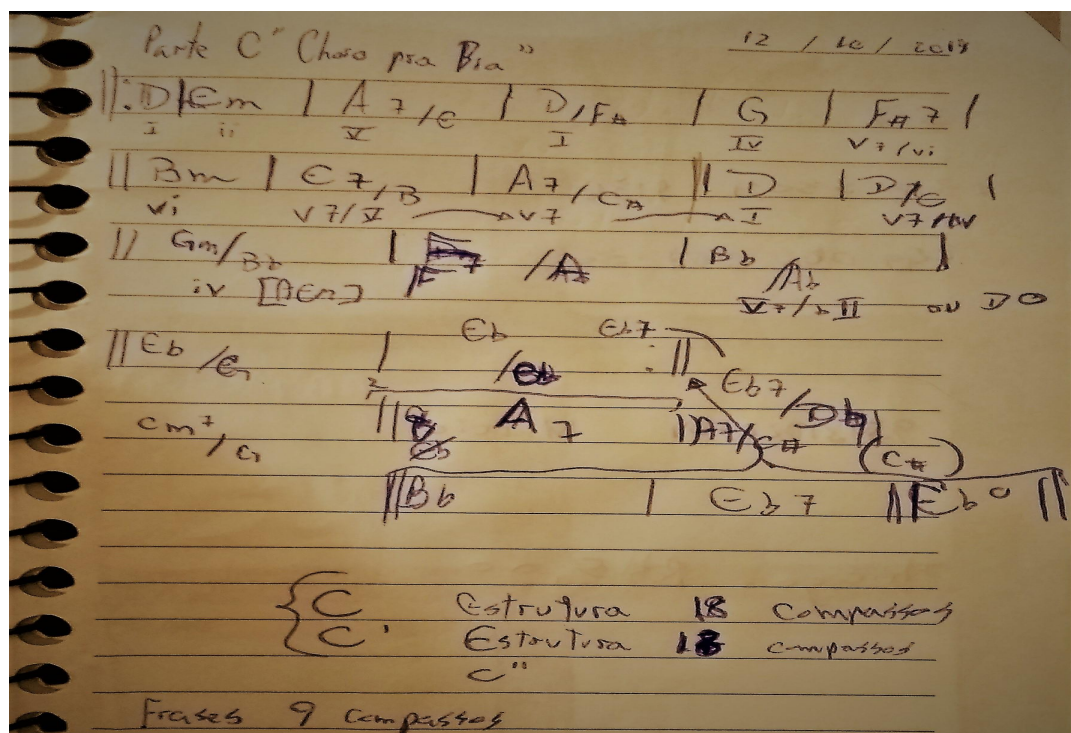 Parte C " Choro pra Bia " 12 / 10 / 2019
||: D | Em | A 7/E | D/F# | G | F#7 |
I ii V I IV V7/vi
|| Bm | E7/B | A7/C# || D | D7/C |
vi V7/V V7 I V7/IV
|| Gm/Bb | /A | Bb /Ab |
iv [AEM] V7/bII ou D°
|| Eb/G | Eb Eb7 :||
Eb7/Db
cm7/G || A7 | A7/C# (C#)
|| Bb | Eb7 || Eb° ||
C Estrutura 18 Compassos
C' Estrutura 18 compassos
C"
Frases 9 compassos